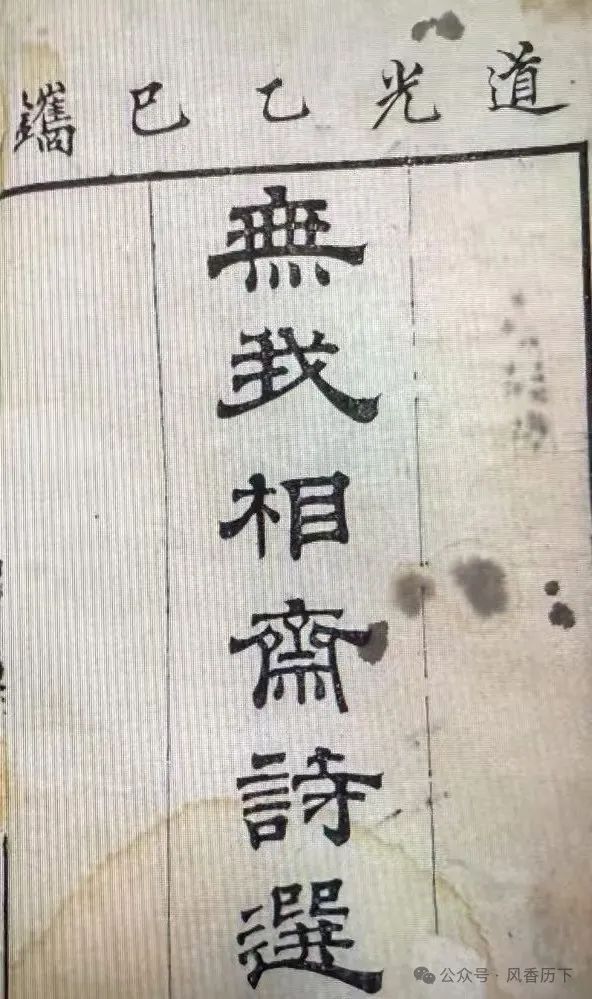 道光乙巳鐫
無我相齋詩選
公众号·风香历下